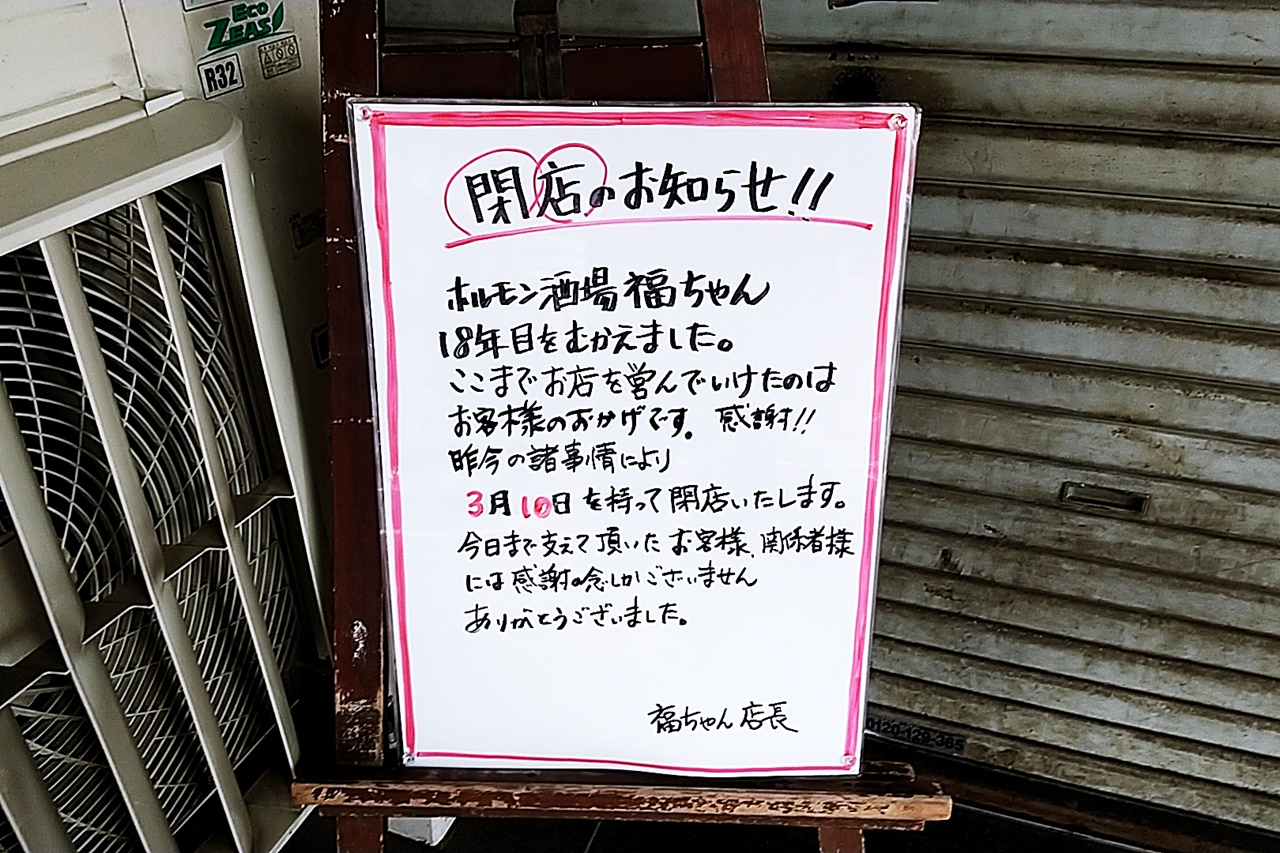 ECO
ZEAS
R32
閉店のお知らせ!!
ホルモン酒場福ちゃん
18年目をむかえました。
ここまでお店を営んでいけたのは
お客様のおかげです。感謝!!
昨今の諸事情により
3月10日を持って閉店いたします。
今日まで支えて頂いたお客様、関係者様
には感謝の念しかございません
ありがとうございました。
福ちゃん店長
0120-128-365